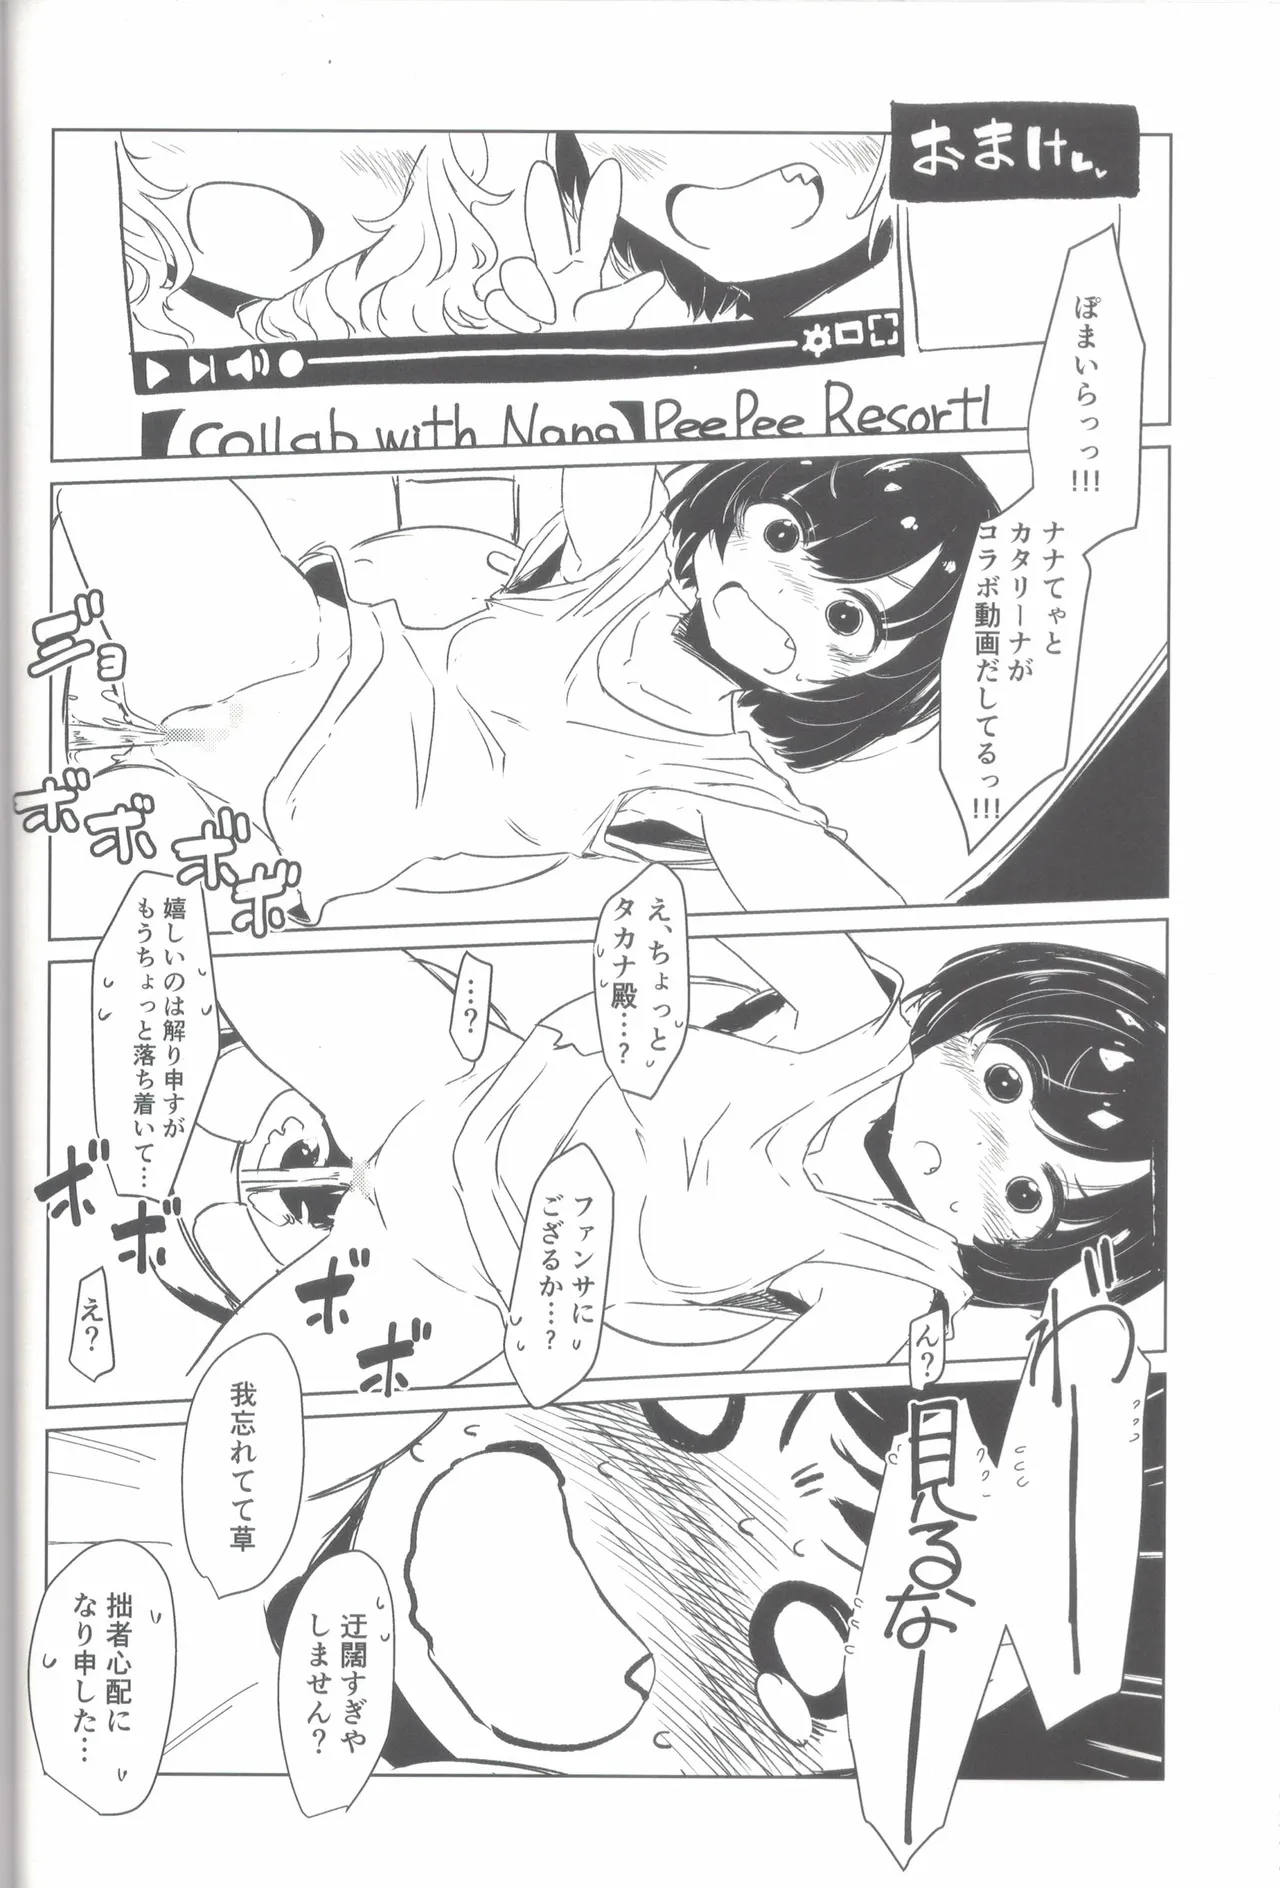 おまけ
【Collab with Nana】PeePee Resort!
ぽまいらっっ!!!
ナナてゃと
カタリーナが
コラボ動画だしてるっ!!!
ジョ
ボボボボ
え、ちょっと
タカナ殿…?
…?
嬉しいのは解り申すが
もうちょっと落ち着いて…
ファンサに
ござるか…?
ん?
え?
ボボボボ
わーー
見るなーー
我忘れてて草
迂闊すぎや
しません?
拙者心配に
なり申した…